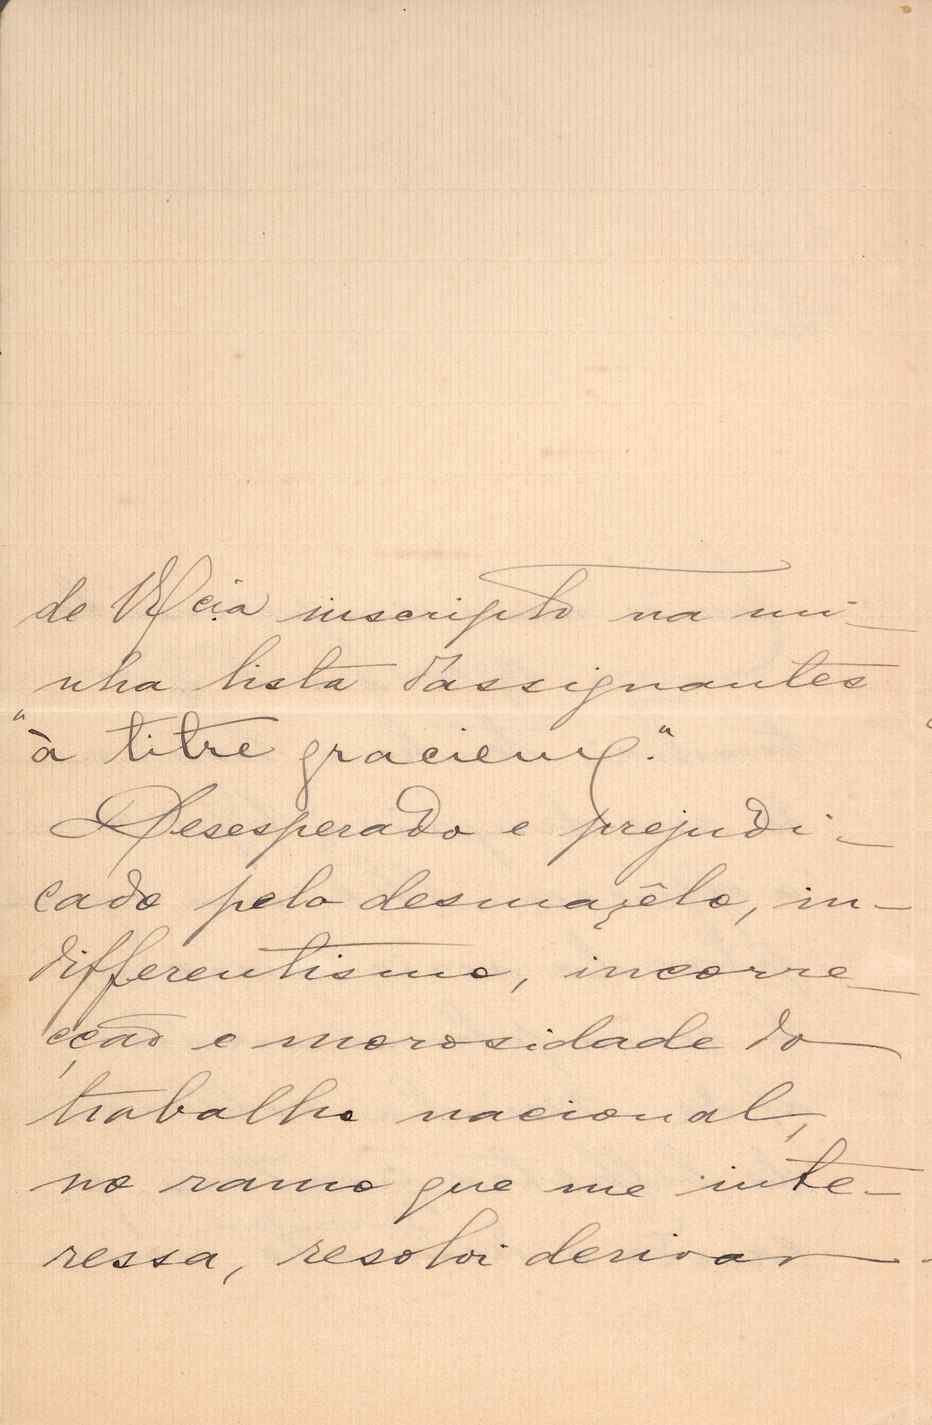 de VExcia inscripto na mi-
nha lista d'assignantes
"à titre gracieux".
Desesperado e prejudi-
cado pelo desmazêlo, in-
differentismo, incorre-
cção e morosidade do
trabalho nacional,
no ramo que me inte-
ressa, resolvi derivar